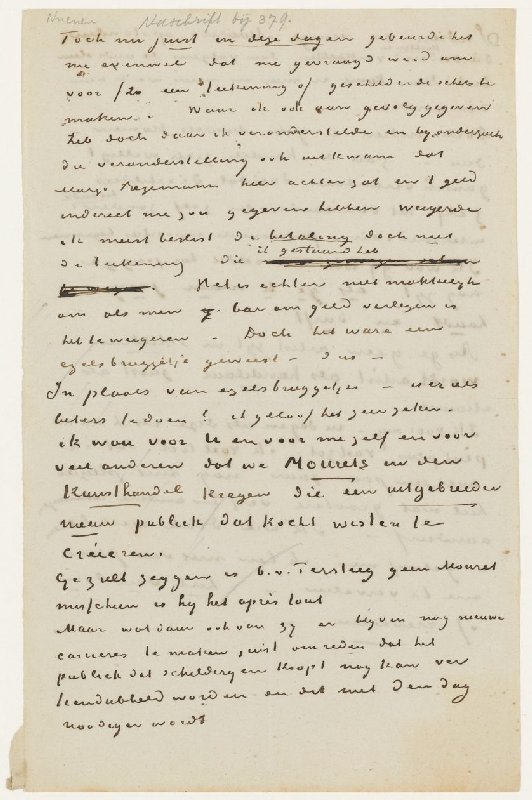 Nuenen Naschrift bij 379.
Toch nu juist in deze dagen gebeurde het
me evenwel dat me gevraagd werd om
voor f20 een teekening of geschilderde schets te
maken. Waar ik ook aan gevolg gegeven
heb doch daar ik veronderstelde en bij onderzoek
die veronderstelling ook uitkwam dat
Margo Begemann hier achter zat en 't geld
indirect me zou gegeven hebben weigerde
ik meest beslist de betaling doch niet
de teekening die ik gestuurd heb
Het is echter niet makkelijk
om als men bar om geld verlegen is
het te weigeren – Doch het ware een
ezelsbruggetje geweest – dus –
In plaats van ezelsbruggetjes – is er iets
beters te doen? ik geloof het zeer zeker.
ik wou voor U en voor me zelf en voor
veel anderen dat we Mourets in den
Kunsthandel kregen die een uitgebreider
nieuw publiek dat kocht wisten te
creëeren.
Ge zult zeggen is b.v. Tersteeg geen Mouret
misschien is hij het après tout
Maar wat daar ook van zij er blijven nog nieuwe
carrieres te maken juist om reden dat het
publiek dat schilderijen koopt nog kan ver
tiendubbeld worden en dit met den dag
noodiger wordt